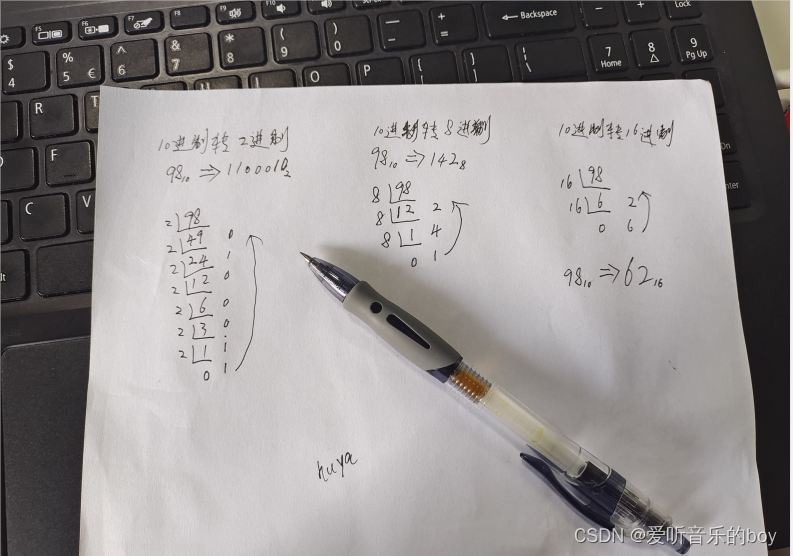 F5
F6
F7
F8
F9
F10
← Backspace
Lock
$
4
%
5 €
^
6
&
7
*
8
(
9
)
0
-
+
=
7
Home
8
△
9
Pg Up
R
T
O
P
F
C
V
10进制转2进制
98₁₀ ⇒ 1100010₂
2 98
2 49 0
2 24 1
2 12 0
2 6 0
2 3 0
2 1 1
0 1
10进制转8进制
98₁₀ ⇒ 142₈
8 98
8 12 2
8 1 4
0 1
10进制转16进制
16 98
16 6 2
0 6
98₁₀ ⇒ 62₁₆
huya
CSDN @爱听音乐的boy